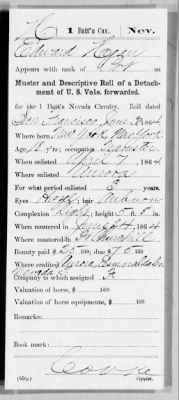 H 1 Batt'n Cav. Nev.
Edward Hogan
Appears with rank of Pvt on
Muster and Descriptive Roll of a Detach-
ment of U. S. Vols. forwarded.
for the 1 Batt'n Nevada Cavalry. Roll dated
San Francisco, June 30, 1864
Where born New York, New York
Age y'rs; occupation Teamster
When enlisted April 7, 1864
Where enlisted Aurora
For what period enlisted 3 years
Eyes Hazel; hair Auburn
Complexion Light; height 5 ft. 8 in.
When mustered in June 24, 1864
Where mustered in Ft Churchill
Bounty paid $25 100; due $75 100
Where credited Aurora Esmeralda Co
Nevada
Company to which assigned
Valuation of horse, $ 100
Valuation of horse equipments, $ 100
Remarks:
Book mark:
Copyist.